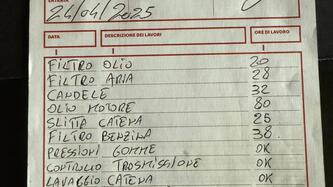 24/04/2025
DATA DESCRIZIONE DEI LAVORI ORE DI LAVORO
FILTRO OLIO 20
FILTRO ARIA 28
CANDELE 32
OLIO MOTORE 80
SLITTA CATENA 25
FILTRO BENZINA 38
PRESSIONI GOMME OK
CONTROLLO TROSMISSIONE OK
LAVAGGIO CATENA OK